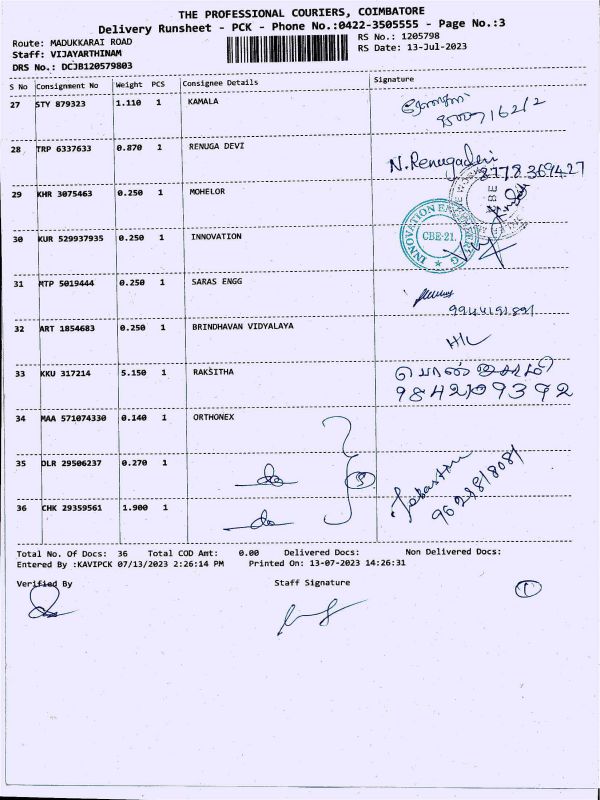 THE PROFESSIONAL COURIERS, COIMBATORE
Delivery Runsheet - PCK - Phone No.:0422-3505555 - Page No.:3
Route: MADUKKARAI ROAD
RS No.: 1205798
Staff: VIJAYARTHINAM
RS Date: 13-Jul-2023
DRS No.: DCJB120579803
S No Consignment No Weight PCS Consignee Details Signature
27 STY 879323 1.110 1 KAMALA
28 TRP 6337633 0.870 1 RENUGA DEVI N.Renugadevi
8778369427
29 KHR 3075463 0.250 1 MOHELOR
30 KUR 529937935 0.250 1 INNOVATION CBE-21.
31 MTP 5019444 0.250 1 SARAS ENGG
32 ART 1854683 0.250 1 BRINDHAVAN VIDYALAYA H/L
33 KKU 317214 5.150 1 RAKSITHA
9842109392
34 MAA 571074330 0.140 1 ORTHONEX
35 DLR 29506237 0.270 1 do 3
36 CHK 29359561 1.900 1 do
Total No. Of Docs: 36 Total COD Amt: 0.00 Delivered Docs: Non Delivered Docs:
Entered By :KAVIPCK 07/13/2023 2:26:14 PM Printed On: 13-07-2023 14:26:31
Verified By Staff Signature